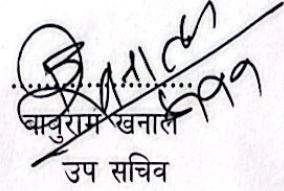 बाबुराम खनाल
उप सचिव